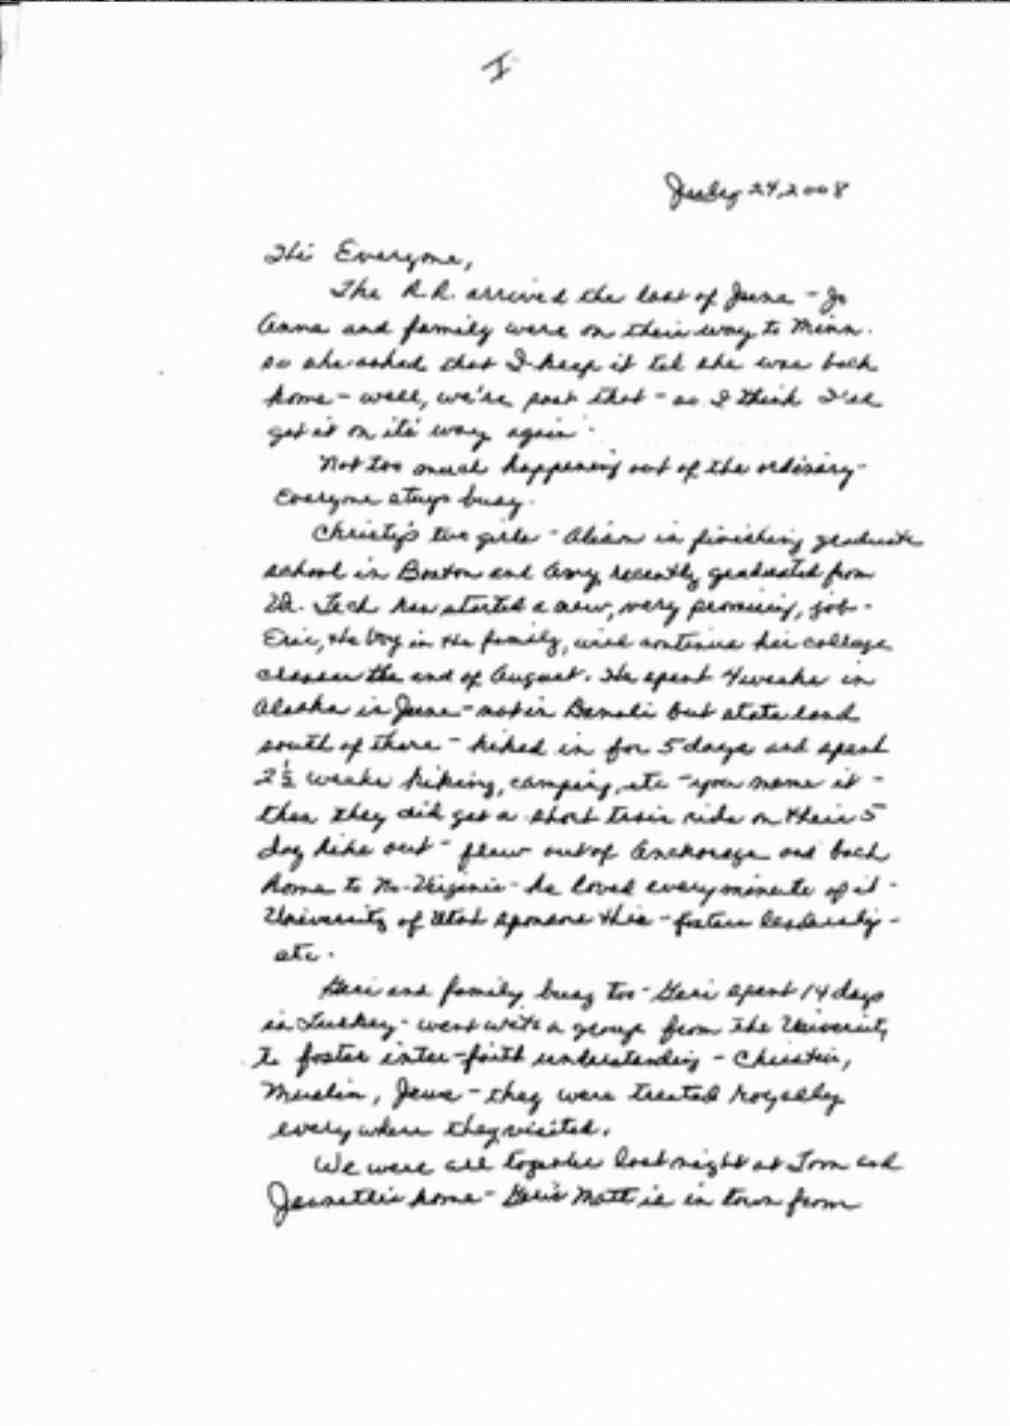 I
July 24, 2008
Hi Everyone,
The R.R. arrived the last of June - Jo
Anna and family were on their way to Minn.
so she asked that I keep it til she was back
home - well, we're past that - so I think I'll
get it on it's way again.
Not too much happening out of the ordinary -
Everyone stays busy.
Christy's two girls - Alison is finishing graduate
school in Boston and Amy, recently graduated from
Va. Tech has started a new, very promising, job.
Eric, the boy in the family, will continue his college
classes the end of August. He spent 4 weeks in
Alaska in June - not in Denali but state land
south of there - hiked in for 5 days and spent
2½ weeks hiking, camping, etc - you name it -
then they did get a short train ride on their 5
day hike out - flew out of Anchorage and back
home to No. Virginia - he loved every minute of it -
University of Utah sponsors this - fosters leadership -
etc.
Geri and family busy too - Geri spent 14 days
in Turkey - went with a group from the University
to foster inter-faith understanding - Christian,
Muslim, Jews - they were treated royally
everywhere they visited.
We were all together last night at Tom and
Jeanette's home - Geri's Matt is in town from